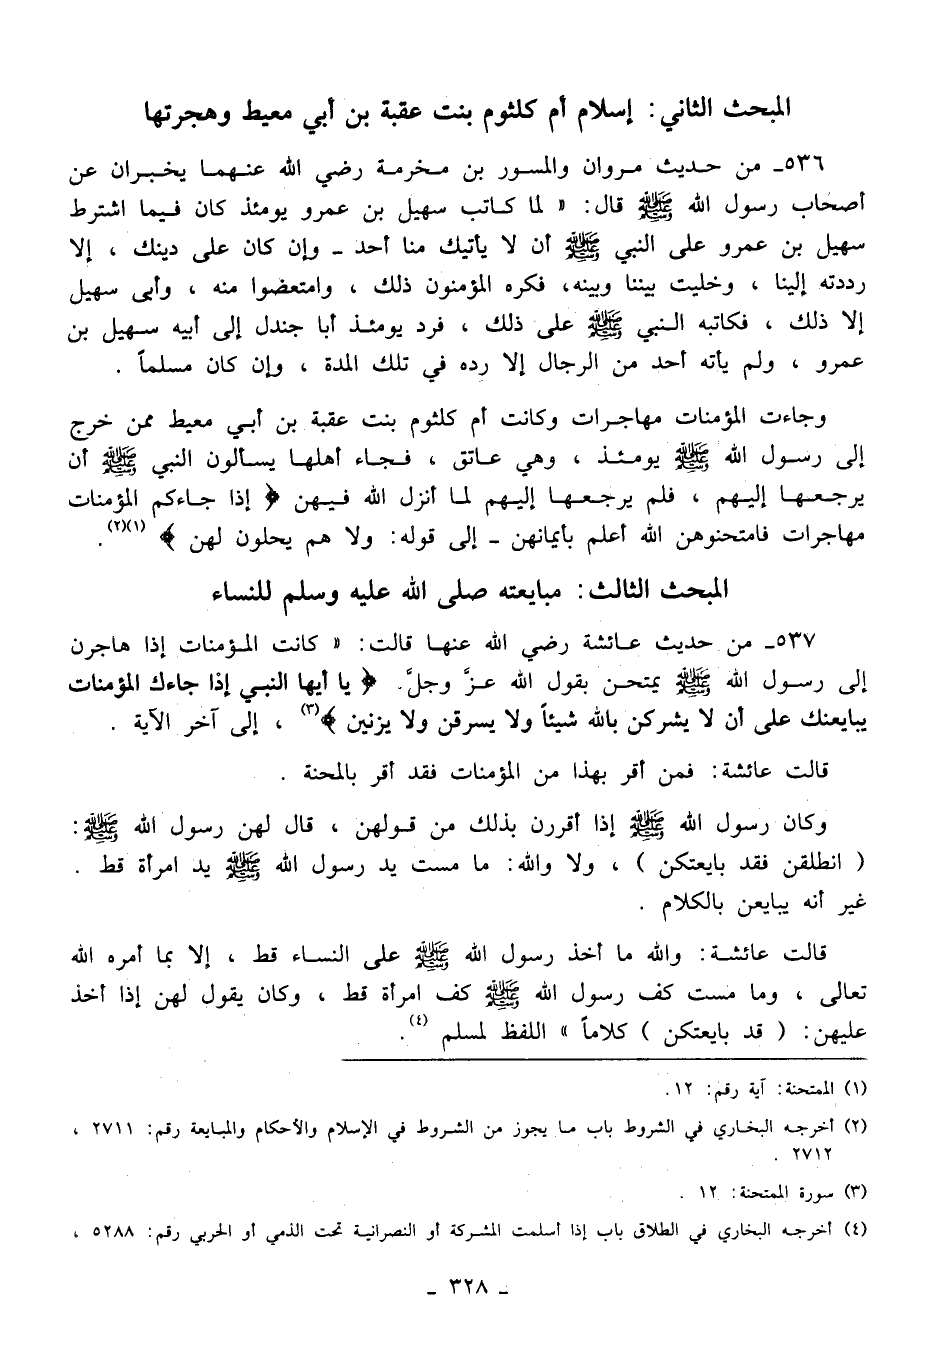 المبحث الثاني: إسلام أم كلثوم بنت عقبة بن أبي معيط وهجرتها
٥٣٦ـ من حديث مروان والمسور بن مخرمة رضي الله عنهما يخبران عن
أصحاب رسول الله ﷺ قال: « لما كاتب سهيل بن عمرو يومئذ كان فيما اشترط
سهيل بن عمرو على النبي ﷺ أن لا يأتيك منا أحد ـ وإن كان على دينك ، إلا
رددته إلينا ، وخليت بيننا وبينه، فكره المؤمنون ذلك ، وامتعضوا منه ، وأبى سهيل
إلا ذلك ، فكاتبه النبي ﷺ على ذلك ، فرد يومئذ أبا جندل إلى أبيه سهيل بن
عمرو ، ولم يأته أحد من الرجال إلا رده في تلك المدة ، وإن كان مسلماً .
وجاءت المؤمنات مهاجرات وكانت أم كلثوم بنت عقبة بن أبي معيط ممن خرج
إلى رسول الله ﷺ يومئذ ، وهي عاتق ، فجاء أهلها يسألون النبي ﷺ أن
يرجعها إليهم ، فلم يرجعها إليهم لما أنزل الله فيهن ﴿ إذا جاءكم المؤمنات
مهاجرات فامتحنوهن الله أعلم بأيمانهن ـ إلى قوله: ولا هم يحلون لهن ﴾ (١)(٢).
المبحث الثالث: مبايعته صلى الله عليه وسلم للنساء
٥٣٧ـ من حديث عائشة رضي الله عنها قالت: « كانت المؤمنات إذا هاجرن
إلى رسول الله ﷺ يمتحن بقول الله عزَّ وجلَّ. ﴿ يا أيها النبي إذا جاءك المؤمنات
يبايعنك على أن لا يشركن بالله شيئاً ولا يسرقن ولا يزنين ﴾(٣) ، إلى آخر الآية .
قالت عائشة: فمن أقر بهذا من المؤمنات فقد أقر بالمحنة .
وكان رسول الله ﷺ إذا أقررن بذلك من قولهن ، قال لهن رسول الله ﷺ:
( انطلقن فقد بايعتكن ) ، ولا والله: ما مست يد رسول الله ﷺ يد امرأة قط .
غير أنه يبايعن بالكلام .
قالت عائشة: والله ما أخذ رسول الله ﷺ على النساء قط ، إلا بما أمره الله
تعالى ، وما مست كف رسول الله ﷺ كف امرأة قط ، وكان يقول لهن إذا أخذ
عليهن: ( قد بايعتكن ) كلاماً » اللفظ لمسلم (٤).
(١) الممتحنة: آية رقم: ١٢.
(٢) أخرجه البخاري في الشروط باب ما يجوز من الشروط في الإسلام والأحكام والمبايعة رقم: ٢٧١١ ،
٢٧١٢ .
(٣) سورة الممتحنة: ١٢ .
(٤) أخرجه البخاري في الطلاق باب إذا أسلمت المشركة أو النصرانية تحت الذمي أو الحربي رقم: ٥٢٨٨ ،
ـ ٣٢٨ ـ